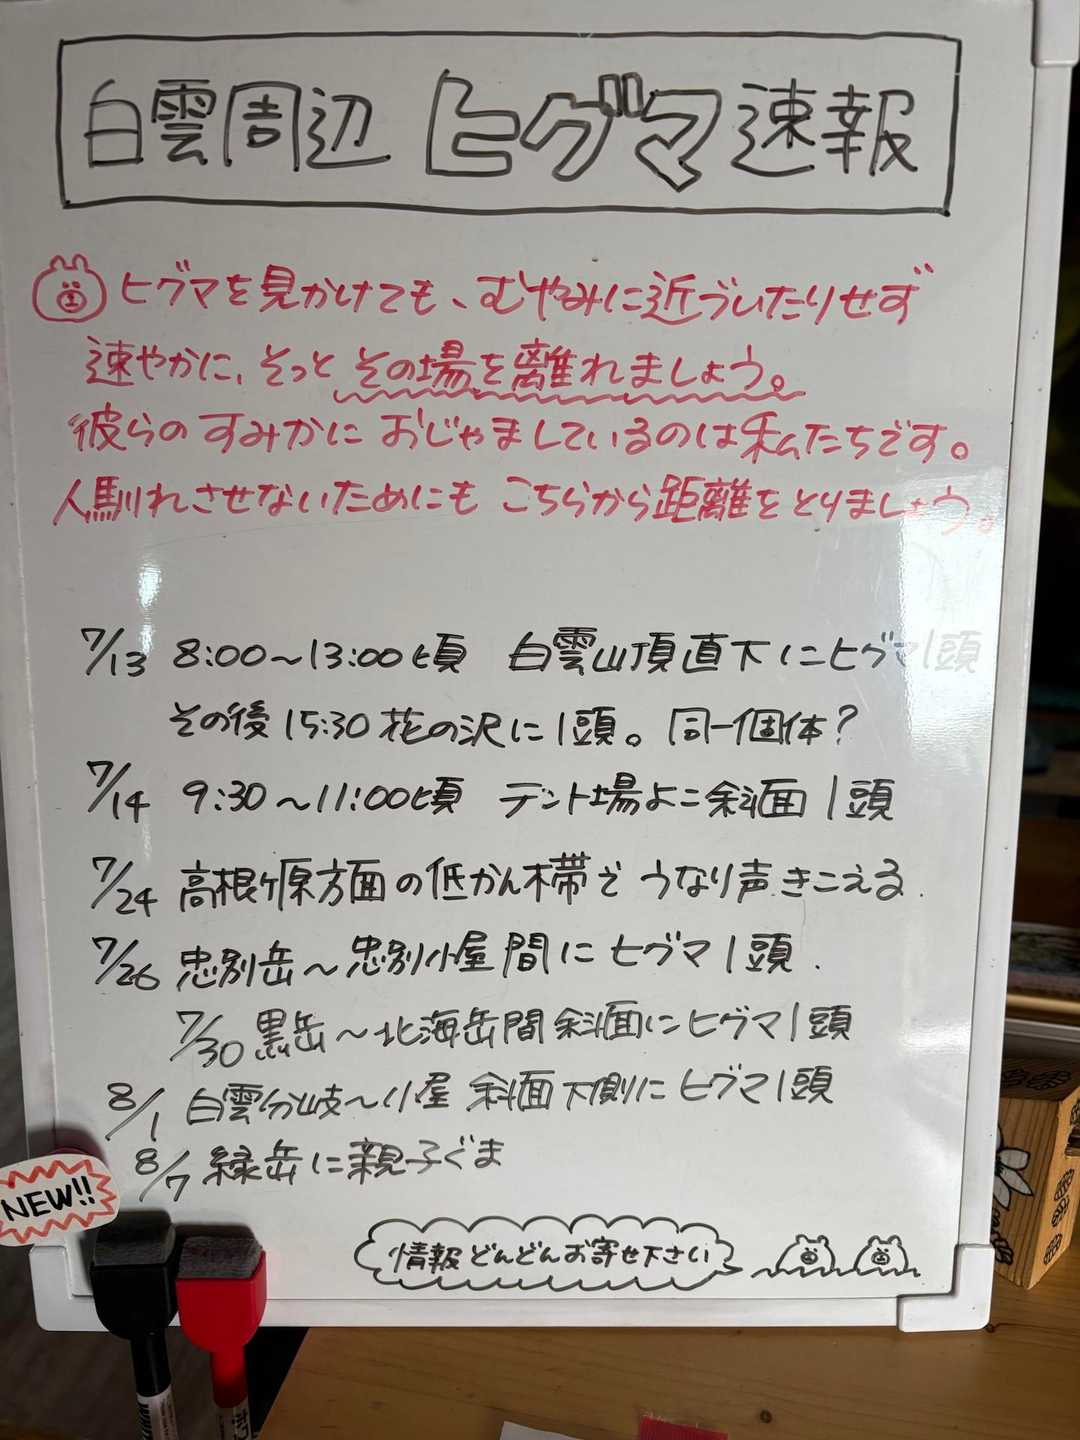 白雲周辺 ヒグマ速報
ヒグマを見かけても、むやみに近づいたりせず
速やかに、そっと その場を離れましょう。
彼らの すみかに おじゃましているのは 私たちです。
人馴れさせないためにも こちらから距離をとりましょう。
7/13 8:00〜13:00頃 白雲山頂直下にヒグマ1頭
その後 15:30 花の沢に1頭。 同一個体?
7/14 9:30〜11:00頃 テント場よこ斜面 1頭
7/24 高根ヶ原方面の低かん木帯で うなり声きこえる.
7/26 忠別岳〜忠別小屋間に ヒグマ1頭.
7/30 黒岳〜北海岳間 斜面にヒグマ1頭
8/1 白雲分岐〜小屋 斜面下側に ヒグマ1頭
8/7 緑岳に親子ぐま
NEW!!
情報どんどんお寄せ下さい